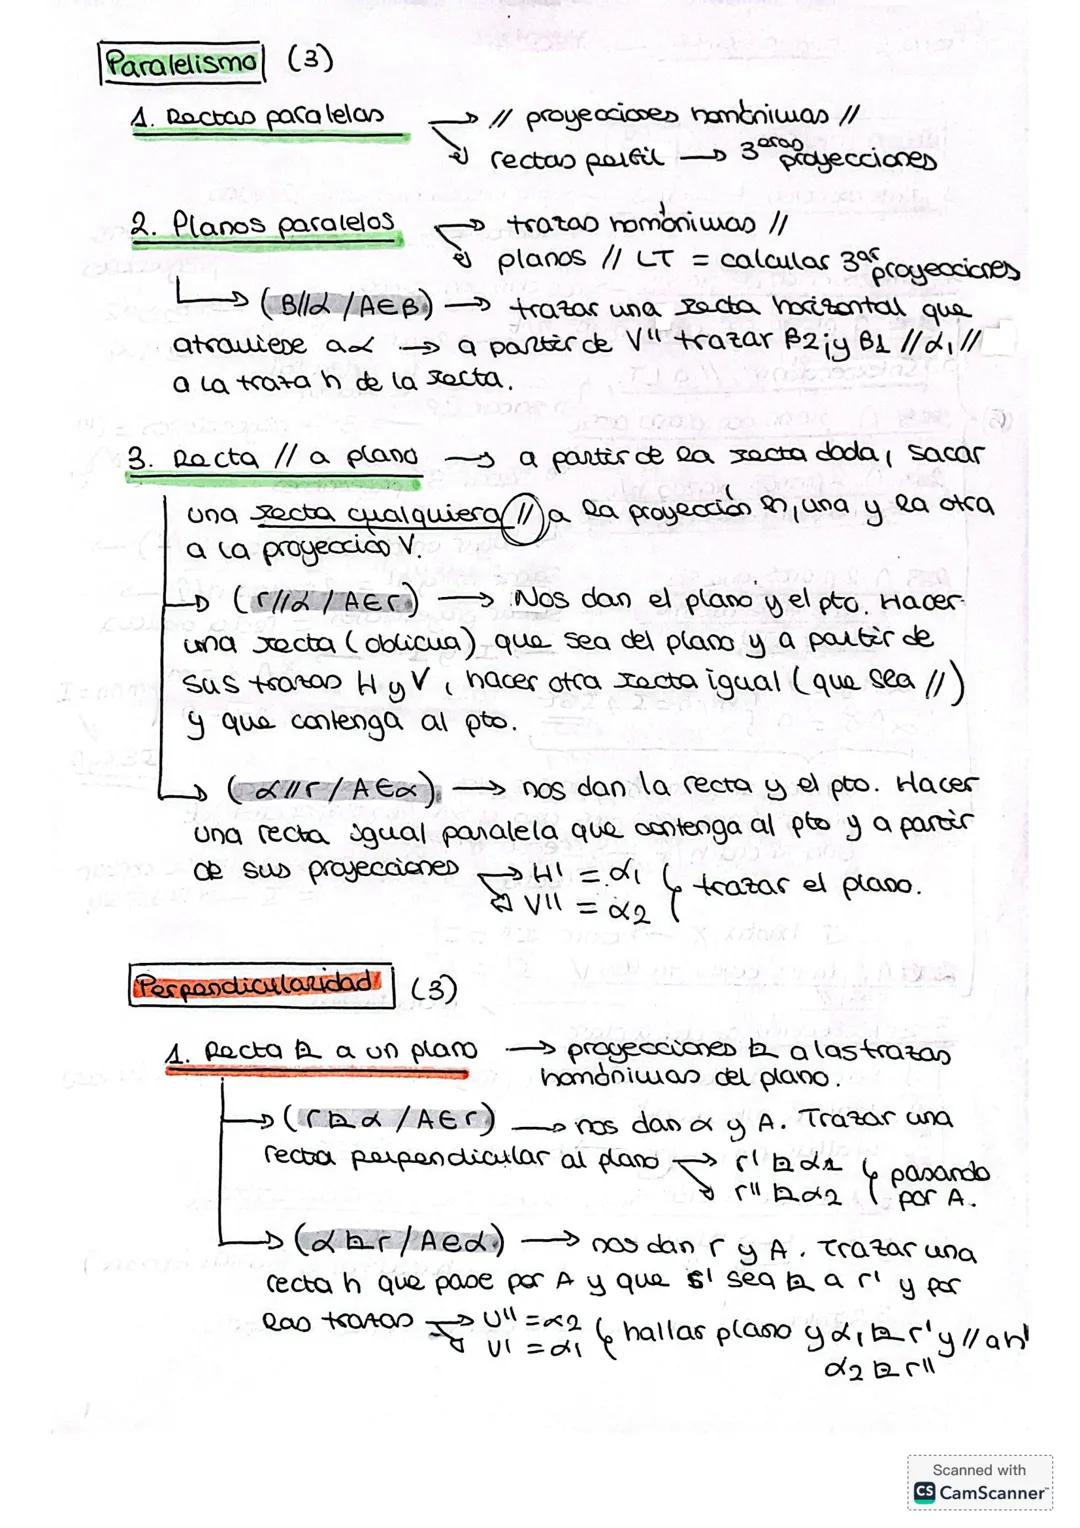 Paralelismo (3)
1. Rectas paralelas → // proyecciones homónimas //
→ rectas perfil → 3eras proyecciones
2. Planos paralelos → trazas homónimas //
→ planos // LT = calcular 3as proyecciones
→ (β//α / A∈β) → trazar una recta horizontal que
atraviese a α → a partir de V'' trazar β2 ; y β1 // α1 //
a la traza h de la recta.
3. Recta // a plano → a partir de la recta dada, sacar
una recta cualquiera // a la proyección h, una y la otra
a la proyección V.
→ (r//α / A∈r) → Nos dan el plano y el pto. Hacer
una recta (oblicua) que sea del plano y a partir de
sus trazas H y V, hacer otra recta igual (que sea //)
y que contenga al pto.
→ (α//r / A∈α) → nos dan la recta y el pto. Hacer
una recta igual paralela que contenga al pto y a partir
de sus proyecciones → H' = α1
→ V'' = α2 } trazar el plano.
Perpendicularidad (3)
1. Recta ⊥ a un plano → proyecciones ⊥ a las trazas
homónimas del plano.
→ (r ⊥ α / A∈r) → nos dan α y A. Trazar una
recta perpendicular al plano → r' ⊥ α1
→ r'' ⊥ α2 } pasando por A.
→ (α ⊥ r / A∈α) → nos dan r y A. Trazar una
recta h que pase por A y que s' sea ⊥ a r' y por
las trazas → V'' = α2
→ V' = α1 } hallar plano y α1 ⊥ r' y // a h'
α2 ⊥ r''
Scanned with
CS CamScanner